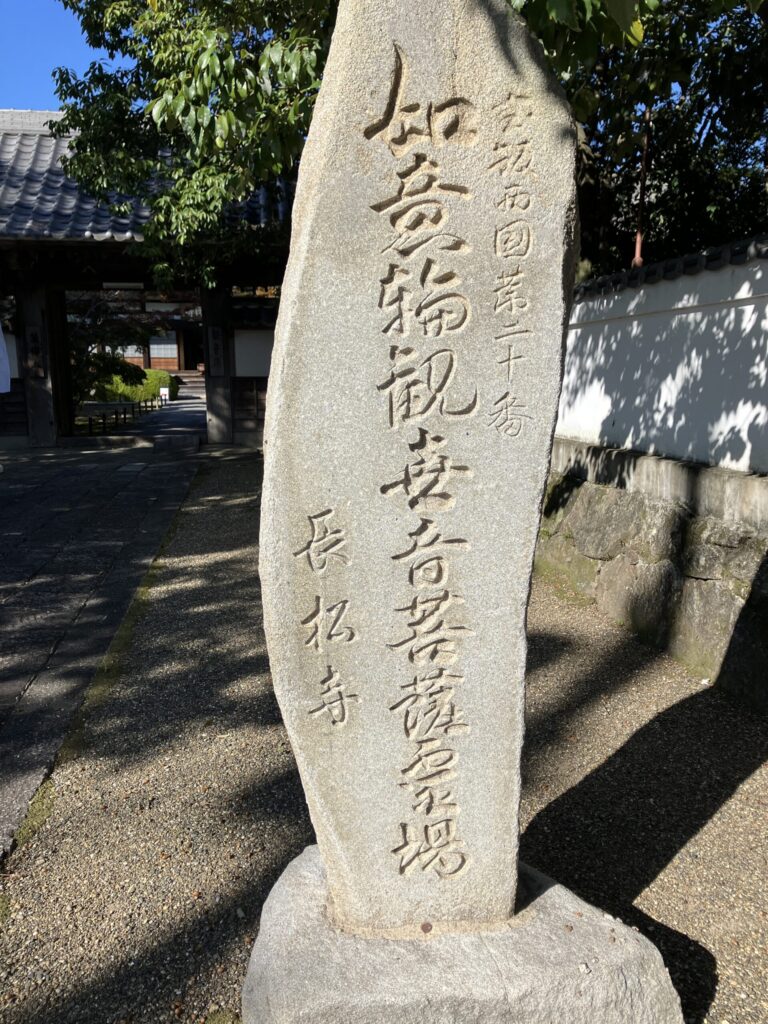 宝飯西国第二十番
如意輪観世音菩薩霊場
長松寺